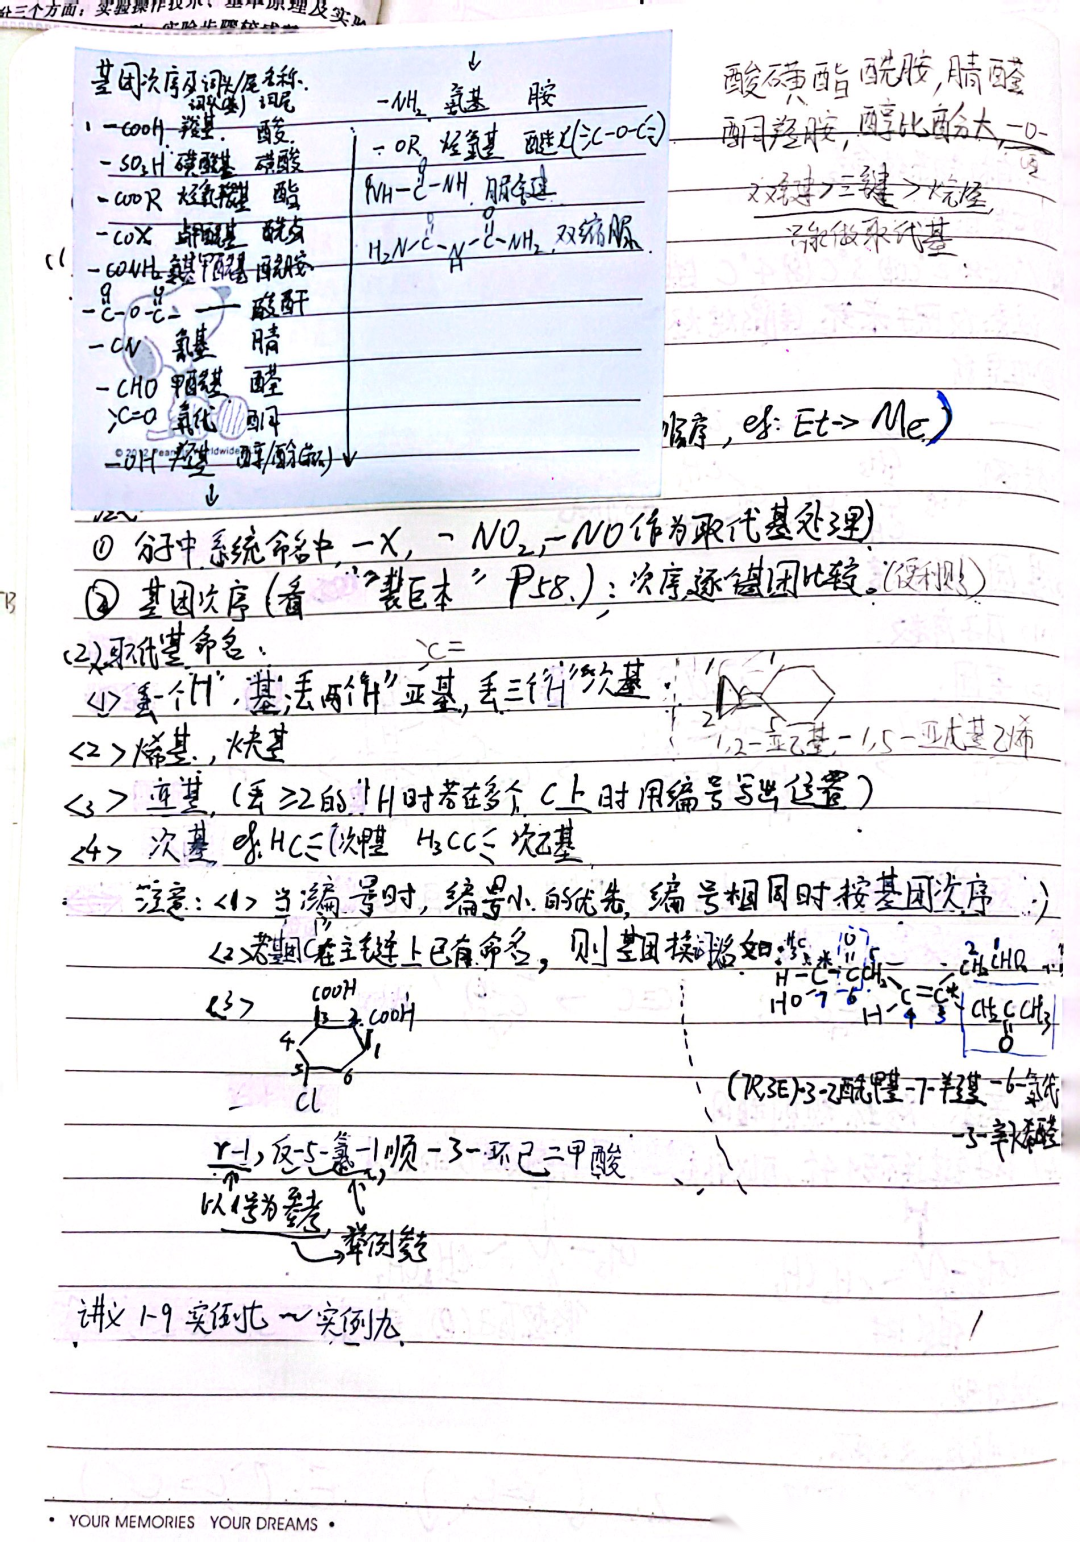 外三个方面：实验操作技术、基本原理及实验
基团次序及词头/尾名称.
词头(基) 词尾
-COOH 羧基. 酸.
-SO₃H 磺酸基 磺酸
-COOR 烃氧羰基 酯
-COX 卤甲酰基 酰卤
-CONH₂ 氨基甲酰基 酰胺
酸酐
-CN 氰基 腈
-CHO 甲酰基 醛
>C=O 氧代 酮
-OH 羟基 醇/酚
↓
↓
-NH₂ 氨基 胺
-OR 烃氧基 醚
脲
双缩脲.
酸磺酯酰胺,腈醛
酮羟胺, 醇比酚大, -O-
双键>三键>烷烃
只能做取代基
顺序, eg: Et-> Me.)
① 分子中系统命名中, -X, -NO₂, -NO作为取代基处理)
② 基团次序(看 "裴巨本" P58.): 次序逐个基团比较。
(2)取代基命名:
<1> 丢一个"H", 基; 丢两个"H"亚基, 丢三个"H"次基
1,2-亚乙基-1,5-亚戊基乙烯
<2> 烯基, 炔基
<3> 亚基, (丢≥2的"H时若在多个C上时用编号写出位置)
<4> 次基 eg: HC≡(次甲基 H₃CC≡ 次乙基
注意: <1> 当编号时, 编号小的优先, 编号相同时按基团次序
<2> 若基团C在主链上已有命名, 则基团换词名 如:
<3>
COOH
COOH
Cl
(7R,3E)-3-乙酰甲基-7-羟基-6-氧代
-3-辛烯醛
r-1, 反-5-氯-1顺-3-环己二甲酸
以1号为参考
举例参考
讲义 1-9 实例七~实例九
• YOUR MEMORIES YOUR DREAMS •